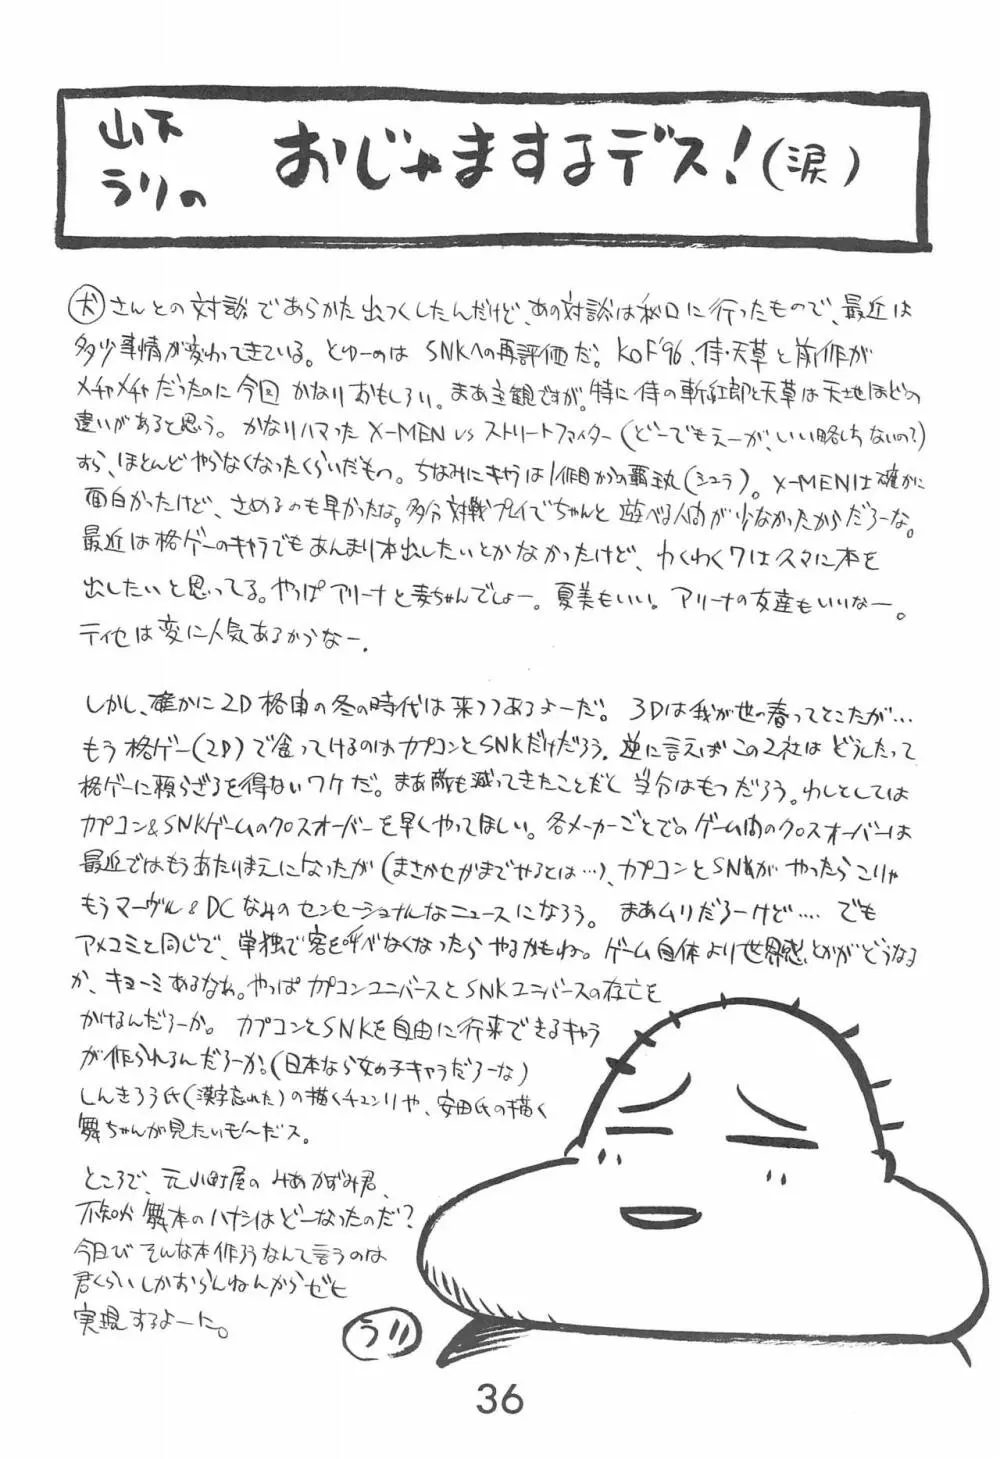 山下
ラリの
おじゃまするデス!(涙)
犬さんとの対談であらかた出つくしたんだけど、あの対談は秋口に行ったもので、最近は
多少事情が変わってきている。とゆーのは SNKへの再評価だ。KOF'96、侍・天草と前作が
メチャメチャだったのに今回かなりおもしろい。まあ主観ですが。特に侍の斬紅郎と天草は天地ほどの
違いがあると思う。かなりハマった X-MEN VS ストリートファイター(どーでもえーが、いい略しちないの?)
すら、ほとんどやらなくなったくらいだもの。ちなみにキャラは1作目からの覇王丸(シュラ)。X-MENは確かに
面白かったけど、さめるのも早かったな。多分対戦プレイでちゃんと遊べる人間が少なかったからだろーな。
最近は格ゲーのキャラでもあんまり本出したいとかなかったけど、わくわく7はスマに本を
出したいと思ってる。やっぱアリーナと麦ちゃんでしょー。夏美もいい。アリーナの友達もいいなー。
ティセは変に人気あるからなー.
しかし、確かに2D格闘の冬の時代は来つつあるよーだ。3Dは我が世の春ってとこだが…
もう格ゲー(2D)で食ってけるのはカプコンとSNKだけだろう。逆に言えばこの2社はどうしたって
格ゲーに頼らざるを得ないワケだ。まあ敵も減ってきたことだし当分はもつだろう。わしとしては
カプコン&SNKゲームのクロスオーバーを早くやってほしい。各メーカーごとでのゲーム間のクロスオーバーは
最近ではもうあたりまえになったが(まさかセガまでやるとは…)、カプコンとSNKがやったらこりゃ
もうマーヴル&DCなみのセンセーショナルなニュースになろう。まあムリだろーけど…. でも
アメコミと同じで、単独で客を呼べなくなったらやるかもね。ゲーム自体より世界感とかがどうなる
か、キョーミあるなね。やっぱカプコンユニバースとSNKユニバースの存亡を
かけるんだろーか。カプコンとSNKを自由に行来できるキャラ
が作られるんだろーか。(日本なら女の子キャラだろーな)
しんきろう氏(漢字忘れた)の描くチュンリや、安田氏の描く
舞ちゃんが見たいも〜だス。
ところで、元小町屋のみあかずみ君、
不知火舞本のハナシはどーなったのだ?
今日び そんな本作ろうなんて言うのは
君くらいしかおらんねんからゼヒ
実現するよーに。
ラリ
36